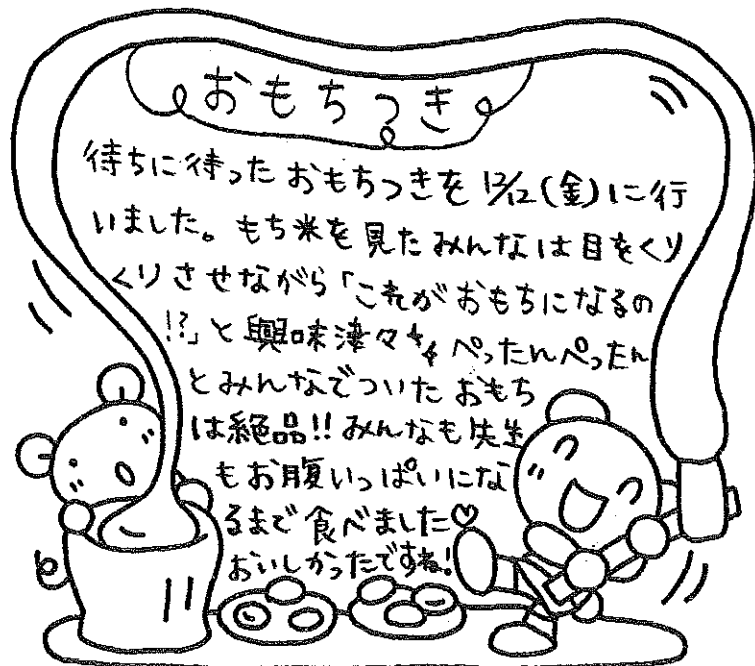 おもちつき
待ちに待ったおもちつきを12/12(金)に行
いました。もち米を見たみんなは目をくり
くりさせながら「これがおもちになるの
!?」と興味津々 ぺったんぺったん
とみんなでついたおもち
は絶品!!みんなも先生
もお腹いっぱいにな
るまで食べました♡
おいしかったですね!